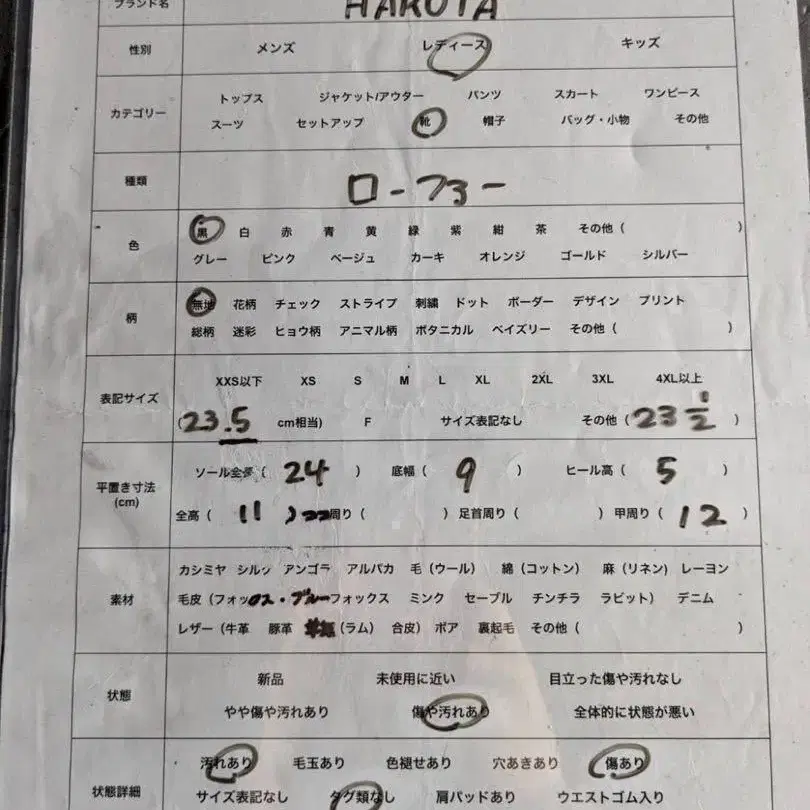 ブランド名 HARUTA
性別 メンズ レディース キッズ
トップス ジャケット/アウター パンツ スカート ワンピース
カテゴリー
スーツ セットアップ 靴 帽子 バッグ・小物 その他
種類 ローファー
黒 白 赤 青 黄 緑 紫 紺 茶 その他（ ）
色
グレー ピンク ベージュ カーキ オレンジ ゴールド シルバー
無地 花柄 チェック ストライプ 刺繍 ドット ボーダー デザイン プリント
柄
総柄 迷彩 ヒョウ柄 アニマル柄 ボタニカル ペイズリー その他（ ）
XXS以下 XS S M L XL 2XL 3XL 4XL以上
表記サイズ
（23.5 cm相当) F サイズ表記なし その他（ 23 1/2 ）
ソール全長（ 24 ） 底幅（ 9 ） ヒール高（ 5 ）
平置き寸法
(cm)
全高（ 11 ） 周り（ ）足首周り（ ）甲周り（ 12 ）
カシミヤ シルク アンゴラ アルパカ 毛（ウール） 綿（コットン） 麻（リネン）レーヨン
素材
毛皮（フォックス・ブルーフォックス ミンク セーブル チンチラ ラビット） デニム
レザー（牛革 豚革 （ラム） 合皮） ボア 裏起毛 その他（ ）
新品 未使用に近い 目立った傷や汚れなし
状態
やや傷や汚れあり 傷や汚れあり 全体的に状態が悪い
汚れあり 毛玉あり 色褪せあり 穴あきあり 傷あり
状態詳細
サイズ表記なし タグ類なし 肩パッドあり ウエストゴム入り